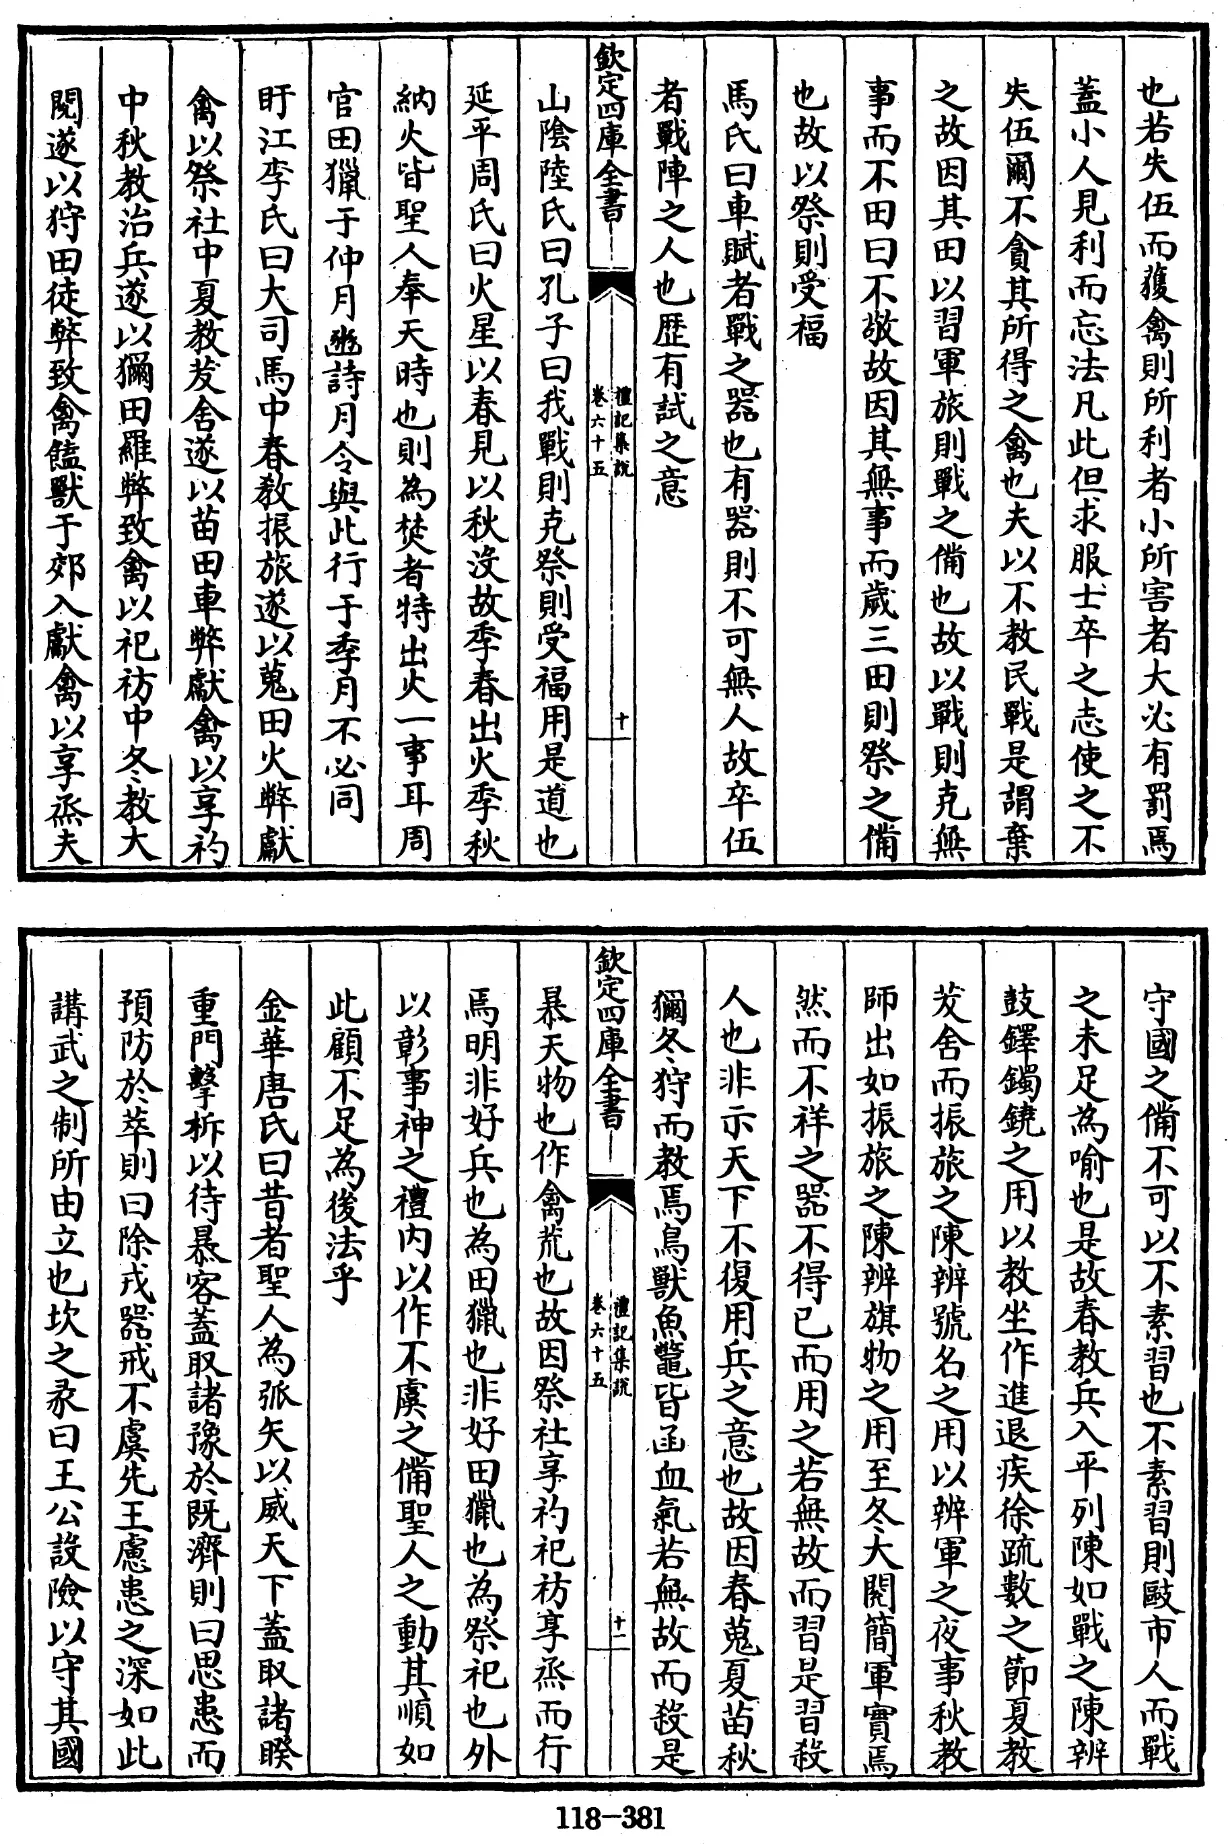 也若失伍而獲禽則所利者小所害者大必有罰焉
蓋小人見利而忘法凡此但求服士卒之志使之不
失伍爾不貪其所得之禽也夫以不教民戰是謂棄
之故因其田以習軍旅則戰之備也故以戰則克無
事而不田曰不敬故因其無事而歲三田則祭之備
也故以祭則受福
馬氏曰車賦者戰之器也有器則不可無人故卒伍
者戰陣之人也歴有試之意
欽定四庫全書
禮記集說
卷六十五
十
山陰陸氏曰孔子曰我戰則克祭則受福用是道也
延平周氏曰火星以春見以秋没故季春出火季秋
納火皆聖人奉天時也則為焚者特出火一事耳周
官田獵于仲月豳詩月令與此行于季月不必同
盱江李氏曰大司馬中春教振旅遂以蒐田火弊獻
禽以祭社中夏教茇舍遂以苗田車弊獻禽以享礿
中秋教治兵遂以獮田羅弊致禽以祀祊中冬教大
閱遂以狩田徒弊致禽饁獸于郊入獻禽以享烝夫
守國之備不可以不素習也不素習則敺市人而戰
之未足為喻也是故春教兵入平列陳如戰之陳辨
鼓鐸鐲鐃之用以教坐作進退疾徐疏數之節夏教
茇舍而振旅之陳辨號名之用以辨軍之夜事秋教
師出如振旅之陳辨旗物之用至冬大閱簡軍實焉
然而不祥之器不得已而用之若無故而習是習殺
人也非示天下不復用兵之意也故因春蒐夏苗秋
獮冬狩而教焉鳥獸魚鼈皆函血氣若無故而殺是
欽定四庫全書
禮記集說
卷六十五
十一
暴天物也作禽荒也故因祭社享礿祀祊享烝而行
焉明非好兵也為田獵也非好田獵也為祭祀也外
以彰事神之禮内以作不虞之備聖人之動其順如
此顧不足為後法乎
金華唐氏曰昔者聖人為弧矢以威天下蓋取諸睽
重門擊柝以待暴客蓋取諸豫於既濟則曰思患而
預防於萃則曰除戎器戒不虞先王慮患之深如此
講武之制所由立也坎之彖曰王公設險以守其國
118-381